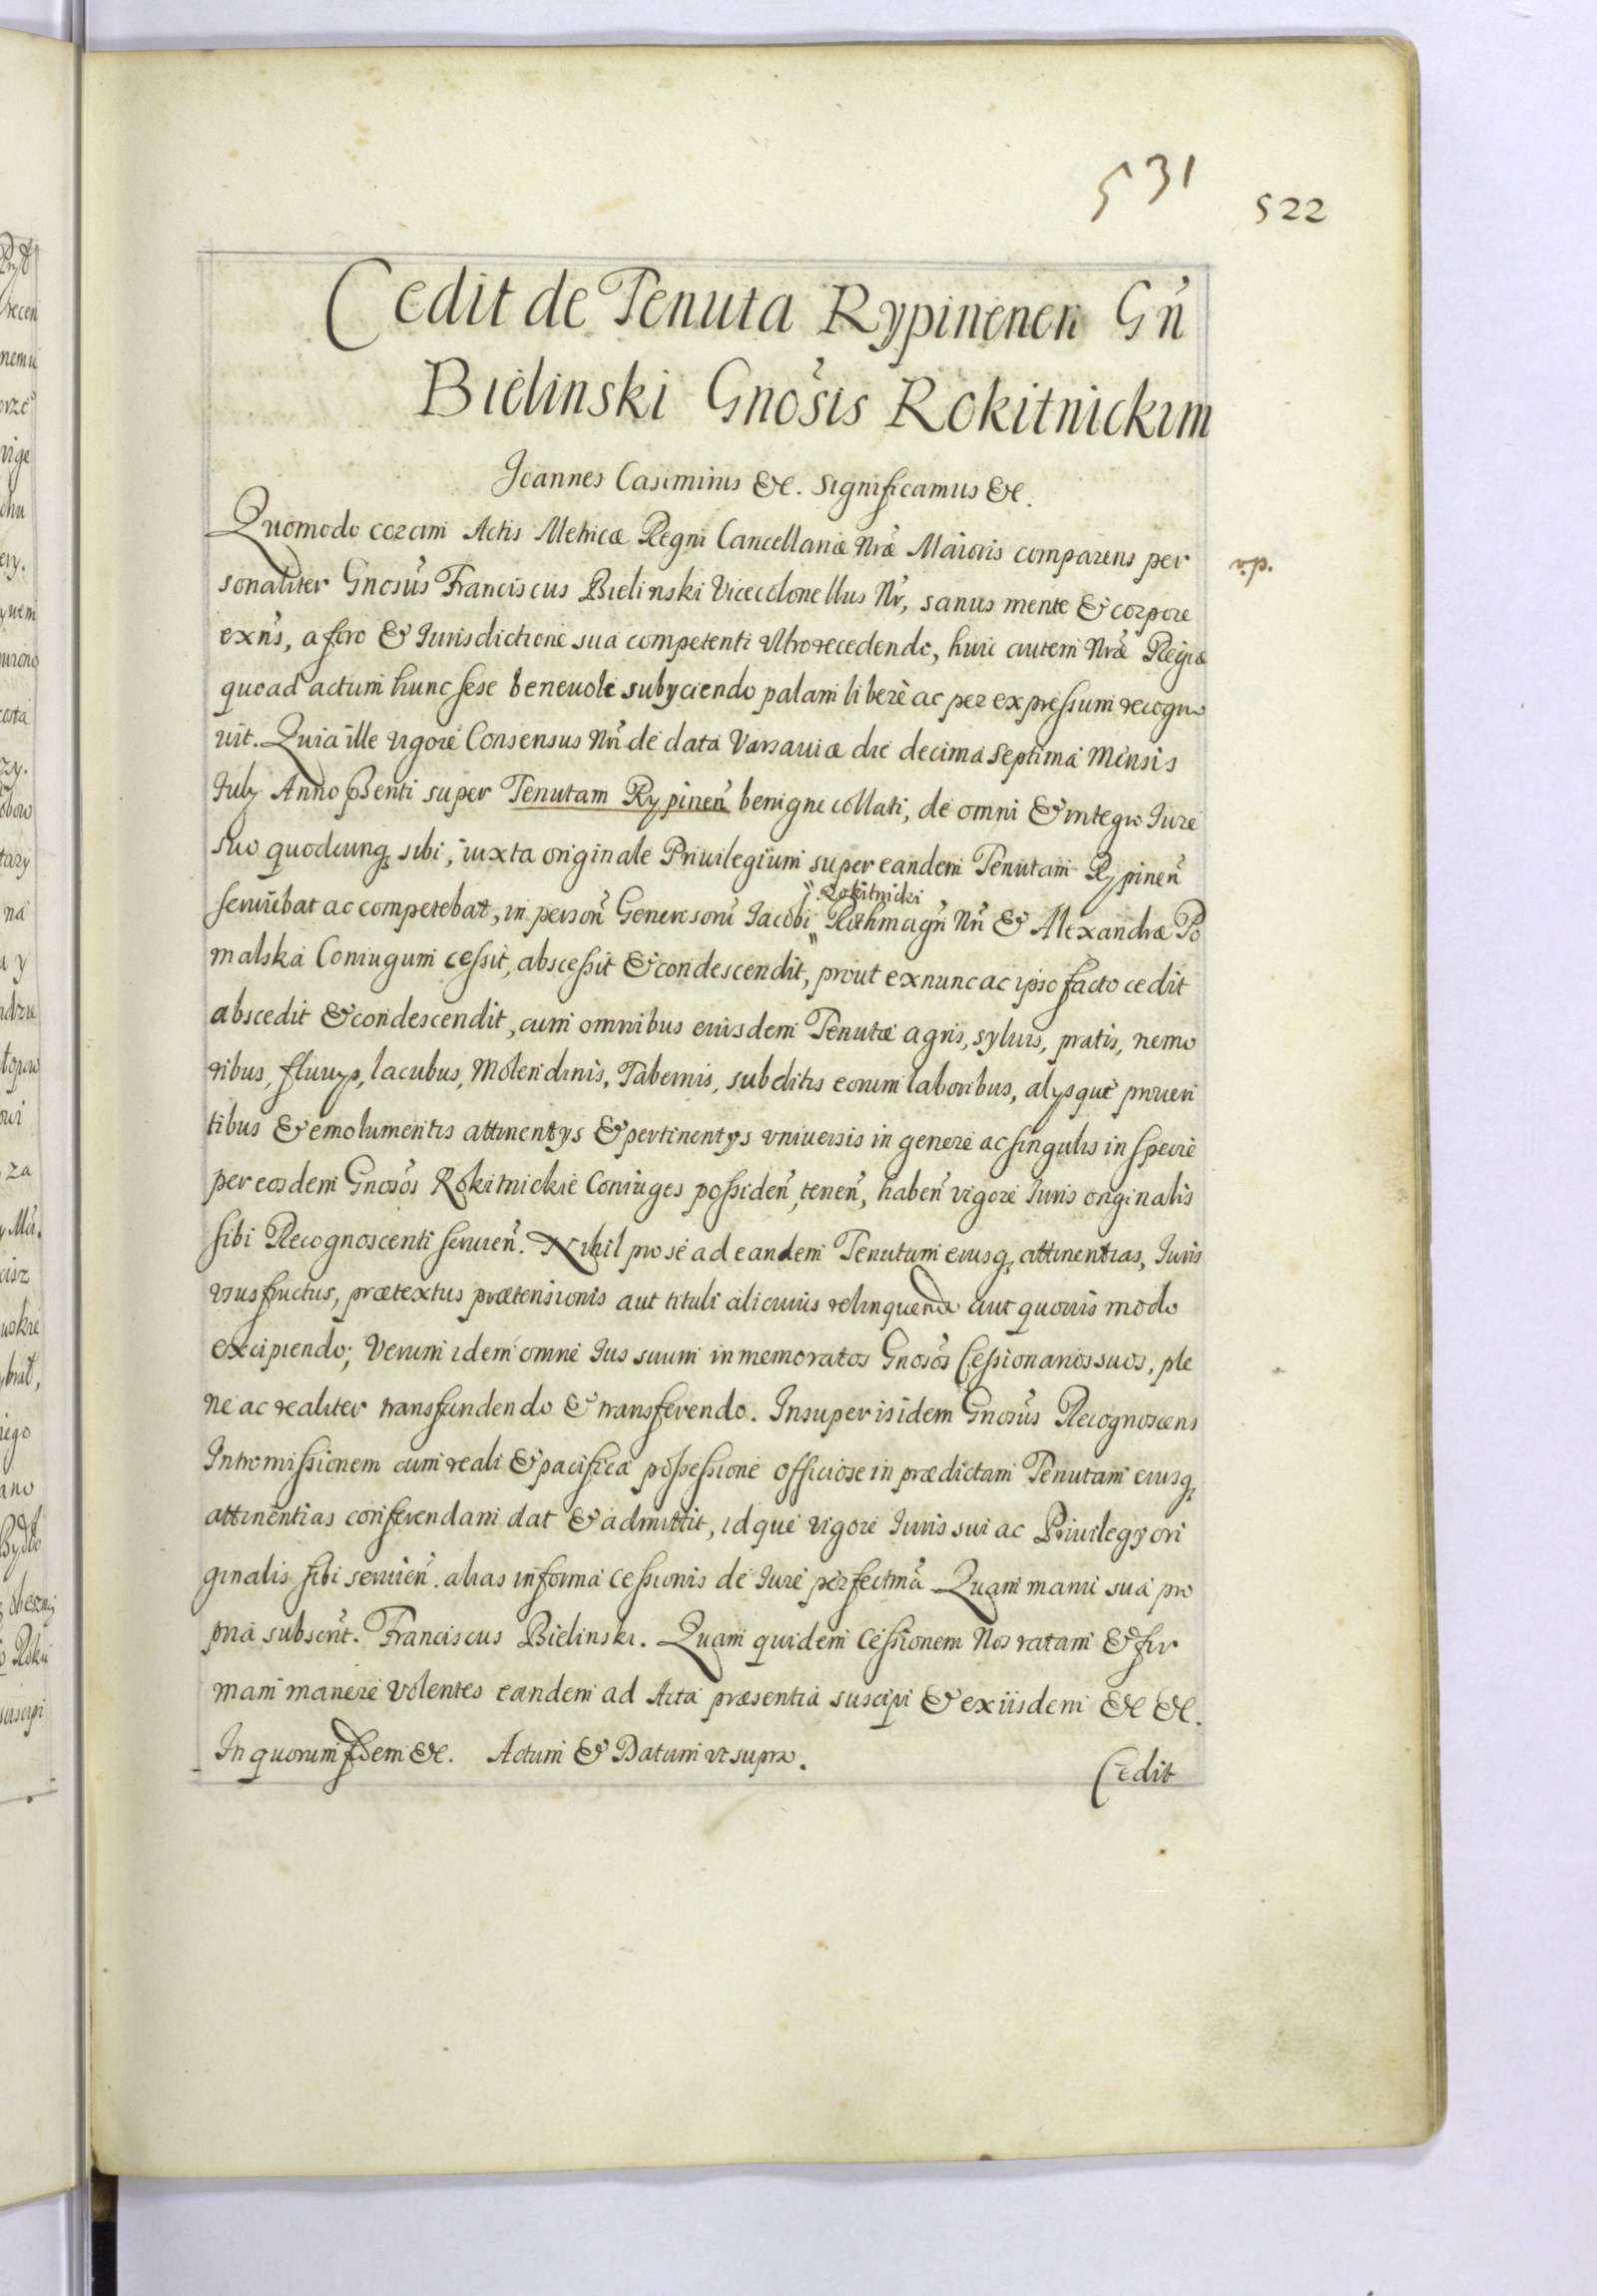 531
522
Cedit de Tenuta Rypinenen Gn̉
Bielinski Gnos̉is Rokitnickim
Joannes Casimirus &c. Significamus &c.
Quomodo coram Actis Metricæ Regni Cancellariæ Nrӕ Maioris comparens per
v.p.
sonaliter Gnosus Franciscus Bielinski Vicecolonellus Nr, sanus mente & corpore
exns, a foro & Iurisdictione sua competenti vltro recedendo, huic autem Nræ Regiæ
quoad actum hunc sese beneuole subyciendo palam liberè ac per expressum recogno
uit. Quia ille vigore Consensus Nri de data Varsauiæ die decima septima Mensis
July Anno pñsenti super Tenutam Rypinen̉ benigne collati, de omni & integro Iure
suo quodcunq sibi, iuxta originale Priuilegium super eandem Tenutam Rypinen̉
Rokitnicki
seruiebat ac competebat, in person̉ Generosorũ Iacobi " Rothmagri Nri & Alexandræ Po
malska Coniugum cessit, abscessit & condescendit, prout ex nunc ac ipso facto cedit
abscedit & condescendit, cum omnibus eiusdem Tenutæ agris, syluis, pratis, nemo
ribus, fluuys, lacubus, Molendinis, Tabernis, subditis eorum laboribus, alysque prouen
tibus & emolumentis attinentys & pertinentys vniuersis in genere ac singulis in specie
per eosdem Gnosos Rokitnickie Coniuges possiden̉, tenen̉, haben̉ vigore Iuris originalis
sibi Recognoscenti seruien̉. Nihil pro se ad eandem Tenutam eiusq attinentias, Iuris
vsusfructus, prætextus prætensionis aut tituli alicuius relinquendo aut quouis modo
excipiendo; Verum idem omne Ius suum in memoratos Gnosos Cessionarios suos, ple
ne ac realiter transfundendo & transferendo. Insuper is idem Gnosus Recognoscens
Intromissionem cum reali & pacifica possessione officiose in prædictam Tenutam eiusq
attinentias conferendam dat & admittit, idque vigore Iuris sui ac Priuilegy ori
ginalis sibi seruien̉. alias in forma cessionis de Iure perfectma Quam manu sua pro
pria subscrit. Franciscus Bielinski. Quam quidem Cessionem Nos ratam & fir
mam manere volentes eandem ad Acta præsentia suscipi & ex iisdem &c &c.
In quorum fidem &c. Actum & Datum vt supra.
Cedit